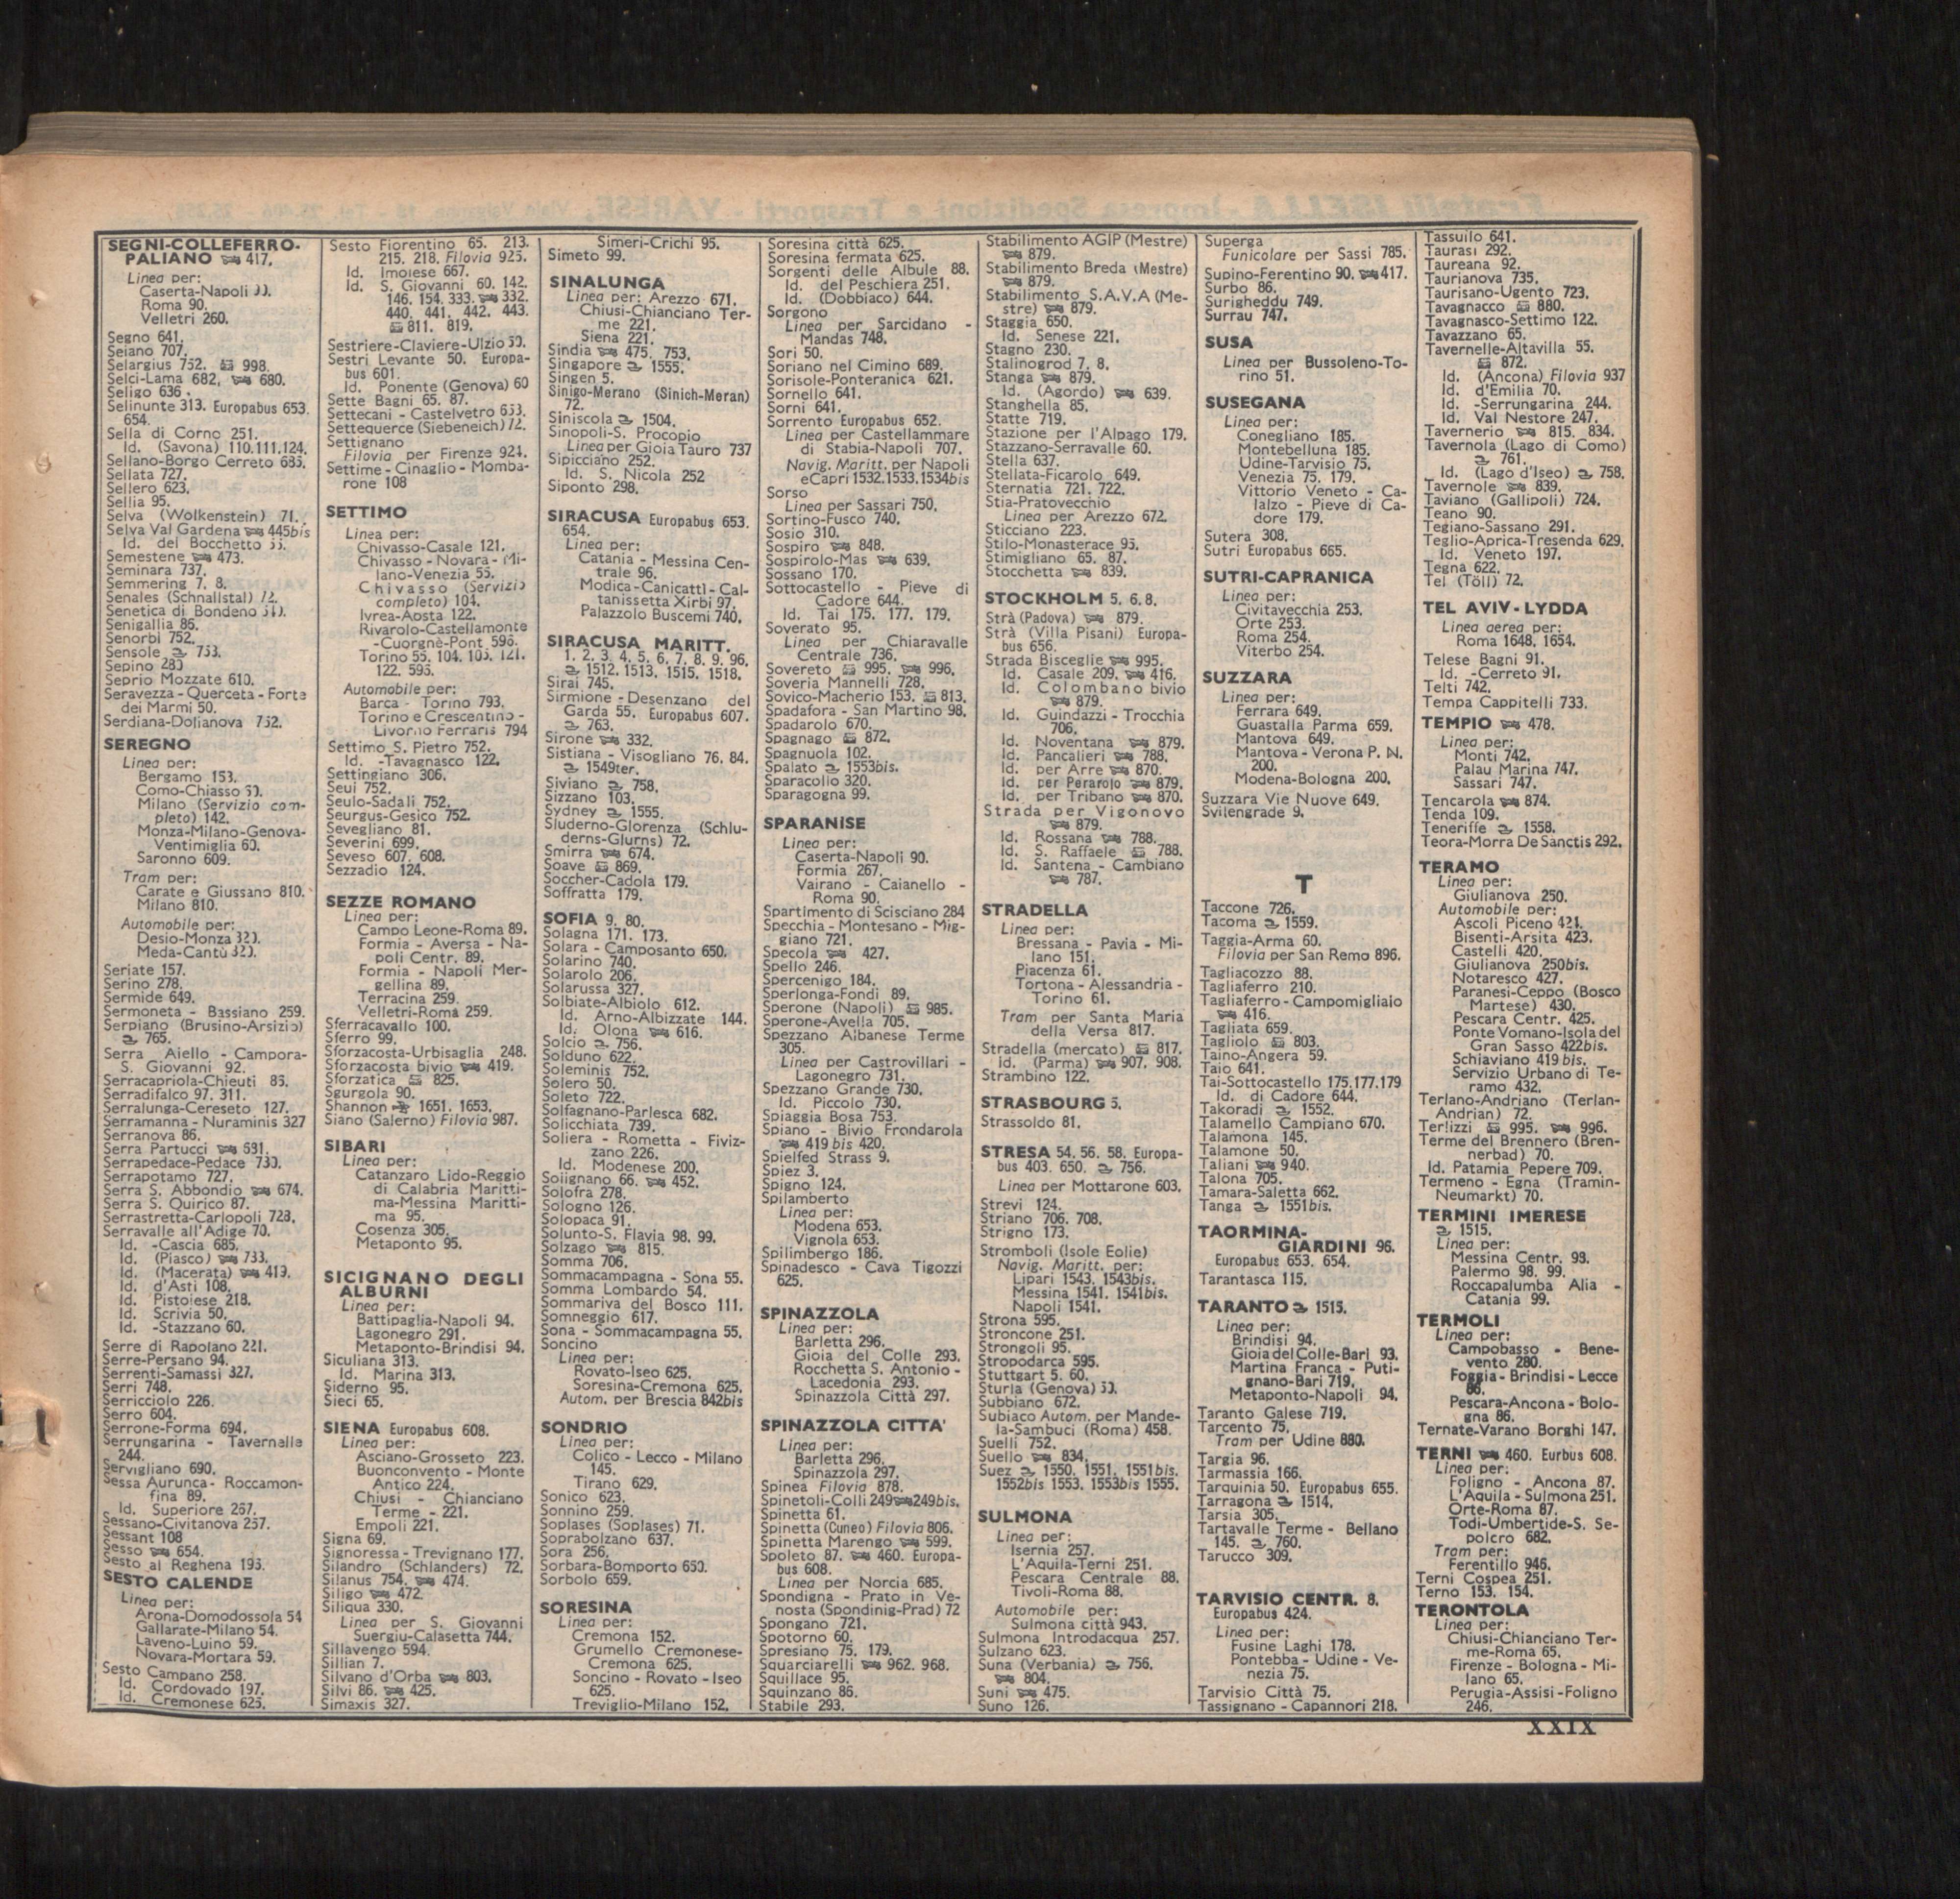 SEGNI-COLLEFERRO-
PALIANO 417.
Linea per:
Caserta-Napoli
Roma 90.
Velletri 260.
Segno 641.
Seiano 707.
Selargius 752. 998.
Selci-Lama 682, 680.
Seligo 636.
Selinunte 313. Europabus 653.
654.
Sella di Corno 251.
Id. (Savona) 110.111.124.
Sellano-Borgo Cerreto 685.
Sellata 727.
Sellero 623.
Sellia 95.
Selva (Wolkenstein) 71.
Selva Val Gardena 445bis
Id. del Bocchetto
Semestene 473.
Seminara 737.
Semmering 7. 8.
Senales (Schnallstal) 72.
Senetica di Bondeno
Senigallia 86.
Senorbì 752.
Sensole 753.
Sepino 280
Seprio Mozzate 610.
Seravezza - Querceta - Forte
dei Marmi 50.
Serdiana-Dolianova 752.
SEREGNO
Linea per:
Bergamo 153.
Como-Chiasso
Milano (Servizio com-
pleto) 142.
Monza-Milano-Genova-
Ventimiglia 60.
Saronno 609.
Tram per:
Carate e Giussano 810.
Milano 810.
Automobile per:
Desio-Monza 320.
Meda-Cantù 320.
Seriate 157.
Serino 278.
Sermide 649.
Sermoneta - Bassiano 259.
Serpiano (Brusino-Arsizio)
765.
Serra Aiello - Campora-
S. Giovanni 92.
Serracapriola-Chieuti 86.
Serradifalco 97. 311.
Serralunga-Cereseto 127.
Serramanna - Nuraminis 327
Serranova 86.
Serra Partucci 681.
Serrapedace-Pedace 730.
Serrapotamo 727.
Serra S. Abbondio 674.
Serra S. Quirico 87.
Serrastretta-Carlopoli 728.
Serravalle all'Adige 70.
Id. -Cascia 685.
Id. (Piasco) 733.
Id. (Macerata) 419.
Id. d'Asti 108.
Id. Pistoiese 218.
Id. Scrivia 50.
Id. -Stazzano 60.
Serre di Rapolano 221.
Serre-Persano 94.
Serrenti-Samassi 327.
Serri 748.
Serricciolo 226.
Serro 604.
Serrone-Forma 694.
Serrungarina - Tavernalle
244.
Servigliano 690.
Sessa Aurunca - Roccamon-
fina 89.
Id. Superiore 267.
Sessano-Civitanova 257.
Sessant 108
Sesso 654.
Sesto al Reghena 195.
SESTO CALENDE
Linea per:
Arona-Domodossola 54
Gallarate-Milano 54.
Laveno-Luino 59.
Novara-Mortara 59.
Sesto Campano 258.
Id. Cordovado 197.
Id. Cremonese 625.
Sesto Fiorentino 65. 213.
215. 218. Filovia 925.
Id. Imolese 667.
Id. S. Giovanni 60. 142.
146. 154. 333. 332.
440. 441. 442. 443.
811. 819.
Sestriere-Claviere-Ulzio 50.
Sestri Levante 50. Europa-
bus 601.
Id. Ponente (Genova) 60
Sette Bagni 65. 87.
Settecani - Castelvetro 653.
Settequerce (Siebeneich) 72.
Settignano
Filovia per Firenze 924.
Settime - Cinaglio - Momba-
rone 108
SETTIMO
Linea per:
Chivasso-Casale 121.
Chivasso - Novara - Mi-
lano-Venezia 55.
Chivasso (Servizio
completo) 104.
Ivrea-Aosta 122.
Rivarolo-Castellamonte
-Cuorgnè-Pont 596.
Torino 55. 104. 105. 121.
122. 596.
Automobile per:
Barca - Torino 793.
Torino e Crescentino -
Livorno Ferraris 794
Settimo S. Pietro 752.
Id. -Tavagnasco 122.
Settingiano 306.
Seui 752.
Seulo-Sadali 752.
Seurgus-Gesico 752.
Sevegliano 81.
Severini 699.
Seveso 607. 608.
Sezzadio 124.
SEZZE ROMANO
Linea per:
Campo Leone-Roma 89.
Formia - Aversa - Na-
poli Centr. 89.
Formia - Napoli Mer-
gellina 89.
Terracina 259.
Velletri-Roma 259.
Sferracavallo 100.
Sferro 99.
Sforzacosta-Urbisaglia 248.
Sforzacosta bivio 419.
Sforzatica 825.
Sgurgola 90.
Shannon 1651. 1653.
Siano (Salerno) Filovia 987.
SIBARI
Linea per:
Catanzaro Lido-Reggio
di Calabria Maritti-
ma-Messina Maritti-
ma 95.
Cosenza 305.
Metaponto 95.
SICIGNANO DEGLI
ALBURNI
Linea per:
Battipaglia-Napoli 94.
Lagonegro 291.
Metaponto-Brindisi 94.
Siculiana 313.
Id. Marina 313.
Siderno 95.
Sieci 65.
SIENA Europabus 608.
Linea per:
Asciano-Grosseto 223.
Buonconvento - Monte
Antico 224.
Chiusi - Chianciano
Terme - 221.
Empoli 221.
Signa 69.
Signoressa - Trevignano 177.
Silandro (Schlanders) 72.
Silanus 754. 474.
Siligo 472.
Siliqua 330.
Linea per S. Giovanni
Suergiu-Calasetta 744.
Sillavengo 594.
Sillian 7.
Silvano d'Orba 803.
Silvi 86. 425.
Simaxis 327.
Simeri-Crichi 95.
Simeto 99.
SINALUNGA
Linea per: Arezzo 671.
Chiusi-Chianciano Ter-
me 221.
Siena 221.
Sindia 475. 753.
Singapore 1555.
Singen 5.
Sinigo-Merano (Sinich-Meran)
72.
Siniscola 1504.
Sinopoli-S. Procopio
Linea per Gioia Tauro 737
Sipicciano 252.
Id. S. Nicola 252
Siponto 298.
SIRACUSA Europabus 653.
654.
Linea per:
Catania - Messina Cen-
trale 96.
Modica-Canicattì - Cal-
tanissetta Xirbi 97.
Palazzolo Buscemi 740.
SIRACUSA MARITT.
1. 2. 3. 4. 5. 6. 7. 8. 9. 96.
1512. 1513. 1515. 1518.
Sirai 745.
Sirmione - Desenzano del
Garda 55. Europabus 607.
763.
Sirone 332.
Sistiana - Visogliano 76. 84.
1549ter.
Siviano 758.
Sizzano 103.
Sydney 1555.
Sluderno-Glorenza (Schlu-
derns-Glurns) 72.
Smirra 674.
Soave 869.
Soccher-Cadola 179.
Soffratta 179.
SOFIA 9. 80.
Solagna 171. 173.
Solara - Camposanto 650.
Solarino 740.
Solarolo 206.
Solarussa 327.
Solbiate-Albiolo 612.
Id. Arno-Albizzate 144.
Id. Olona 616.
Solcio 756.
Solduno 622.
Soleminis 752.
Solero 50.
Soleto 722.
Solfagnano-Parlesca 682.
Solicchiata 739.
Soliera - Rometta - Fiviz-
zano 226.
Id. Modenese 200.
Solignano 66. 452.
Solofra 278.
Sologno 126.
Solopaca 91.
Solunto-S. Flavia 98. 99.
Solzago 815.
Somma 706.
Sommacampagna - Sona 55.
Somma Lombardo 54.
Sommariva del Bosco 111.
Somneggio 617.
Sona - Sommacampagna 55.
Soncino
Linea per:
Rovato-Iseo 625.
Soresina-Cremona 625.
Autom. per Brescia 842bis
SONDRIO
Linea per:
Colico - Lecco - Milano
145.
Tirano 629.
Sonico 623.
Sonnino 259.
Soplases (Soplases) 71.
Soprabolzano 637.
Sora 256.
Sorbara-Bomporto 650.
Sorbolo 659.
SORESINA
Linea per:
Cremona 152.
Grumello Cremonese-
Cremona 625.
Soncino - Rovato - Iseo
625.
Treviglio-Milano 152.
Soresina città 625.
Soresina fermata 625.
Sorgenti delle Albule 88.
Id. del Peschiera 251.
Id. (Dobbiaco) 644.
Sorgono
Linea per Sarcidano -
Mandas 748.
Sori 50.
Soriano nel Cimino 689.
Sorisole-Ponteranica 621.
Sornello 641.
Sorni 641.
Sorrento Europabus 652.
Linea per Castellammare
di Stabia-Napoli 707.
Navig. Maritt. per Napoli
e Capri 1532.1533.1534bis
Sorso
Linea per Sassari 750.
Sortino-Fusco 740.
Sosio 310.
Sospiro 848.
Sospirolo-Mas 639.
Sossano 170.
Sottocastello - Pieve di
Cadore 644.
Id. Tai 175. 177. 179.
Soverato 95.
Linea per Chiaravalle
Centrale 736.
Sovereto 995. 996.
Soveria Mannelli 728.
Sovico-Macherio 153. 813.
Spadafora - San Martino 98.
Spadarolo 670.
Spagnago 872.
Spagnuola 102.
Spalato 1553bis.
Sparacollo 320.
Sparagogna 99.
SPARANISE
Linea per:
Caserta-Napoli 90.
Formia 267.
Vairano - Caianello -
Roma 90.
Spartimento di Scisciano 284
Specchia - Montesano - Mig-
giano 721.
Specola 427.
Spello 246.
Spercenigo 184.
Sperlonga-Fondi 89.
Sperone (Napoli) 985.
Sperone-Avella 705.
Spezzano Albanese Terme
305.
Linea per Castrovillari -
Lagonegro 731.
Spezzano Grande 730.
Id. Piccolo 730.
Spiaggia Bosa 753.
Spiano - Bivio Frondarola
419 bis 420.
Spielfed Strass 9.
Spiez 3.
Spigno 124.
Spilamberto
Linea per:
Modena 653.
Vignola 653.
Spilimbergo 186.
Spinadesco - Cava Tigozzi
625.
SPINAZZOLA
Linea per:
Barletta 296.
Gioia del Colle 293.
Rocchetta S. Antonio -
Lacedonia 293.
Spinazzola Città 297.
SPINAZZOLA CITTA'
Linea per:
Barletta 296.
Spinazzola 297.
Spinea Filovia 878.
Spinetoli-Colli 249 249bis.
Spinetta 61.
Spinetta (Cuneo) Filovia 806.
Spinetta Marengo 599.
Spoleto 87. 460. Europa-
bus 608.
Linea per Norcia 685.
Spondigna - Prato in Ve-
nosta (Spondinig-Prad) 72
Spongano 721.
Spotorno 60.
Spresiano 75. 179.
Squarciarelli 962. 968.
Squillace 95.
Squinzano 86.
Stabile 293.
Stabilimento AGIP (Mestre)
879.
Stabilimento Breda (Mestre)
879.
Stabilimento S.A.V.A (Me-
stre) 879.
Staggia 650.
Id. Senese 221.
Stagno 230.
Stalinogrod 7. 8.
Stanga 879.
Id. (Agordo) 639.
Stanghella 85.
Statte 719.
Stazione per l'Alpago 179.
Stazzano-Serravalle 60.
Stella 637.
Stellata-Ficarolo 649.
Sternatia 721. 722.
Stia-Pratovecchio
Linea per Arezzo 672.
Sticciano 223.
Stilo-Monasterace 95.
Stimigliano 65. 87.
Stocchetta 839.
STOCKHOLM 5. 6. 8.
Strà (Padova) 879.
Strà (Villa Pisani) Europa-
bus 656.
Strada Bisceglie 995.
Id. Casale 209. 416.
Id. Colombano bivio
879.
Id. Guindazzi - Trocchia
706.
Id. Noventana 879.
Id. Pancalieri 788.
Id. per Arre 870.
Id. per Perarolo 879.
Id. per Tribano 870.
Strada per Vigonovo
879.
Id. Rossana 788.
Id. S. Raffaele 788.
Id. Santena - Cambiano
787.
STRADELLA
Linea per:
Bressana - Pavia - Mi-
lano 151.
Piacenza 61.
Tortona - Alessandria -
Torino 61.
Tram per Santa Maria
della Versa 817.
Stradella (mercato) 817.
id. (Parma) 907. 908.
Strambino 122.
STRASBOURG 5.
Strassoldo 81.
STRESA 54. 56. 58. Europa-
bus 403. 650. 756.
Linea per Mottarone 603.
Strevi 124.
Striano 706. 708.
Strigno 173.
Stromboli (Isole Eolie)
Navig. Maritt. per:
Lipari 1543. 1543bis.
Messina 1541. 1541bis.
Napoli 1541.
Strona 595.
Stroncone 251.
Strongoli 95.
Stropodarca 595.
Stuttgart 5. 60.
Sturla (Genova) 50.
Subbiano 672.
Subiaco Autom. per Mande-
la-Sambuci (Roma) 458.
Suelli 752.
Suello 834.
Suez 1550. 1551. 1551bis.
1552bis 1553. 1553bis 1555.
SULMONA
Linea per:
Isernia 257.
L'Aquila-Terni 251.
Pescara Centrale 88.
Tivoli-Roma 88.
Automobile per:
Sulmona città 943.
Sulmona Introdacqua 257.
Sulzano 623.
Suna (Verbania) 756.
804.
Suni 475.
Suno 126.
Superga
Funicolare per Sassi 785.
Supino-Ferentino 90. 417.
Surbo 86.
Surigheddu 749.
Surrau 747.
SUSA
Linea per Bussoleno-To-
rino 51.
SUSEGANA
Linea per:
Conegliano 185.
Montebelluna 185.
Udine-Tarvisio 75.
Venezia 75. 179.
Vittorio Veneto - Ca-
lalzo - Pieve di Ca-
dore 179.
Sutera 308.
Sutri Europabus 665.
SUTRI-CAPRANICA
Linea per:
Civitavecchia 253.
Orte 253.
Roma 254.
Viterbo 254.
SUZZARA
Linea per:
Ferrara 649.
Guastalla Parma 659.
Mantova 649.
Mantova - Verona P. N.
200.
Modena-Bologna 200.
Suzzara Vie Nuove 649.
Svilengrade 9.
T
Taccone 726.
Tacoma 1559.
Taggia-Arma 60.
Filovia per San Remo 896.
Tagliacozzo 88.
Tagliaferro 210.
Tagliaferro - Campomigliaio
416.
Tagliata 659.
Tagliolo 803.
Taino-Angera 59.
Taio 641.
Tai-Sottocastello 175.177.179
Id. di Cadore 644.
Takoradi 1552.
Talamello Campiano 670.
Talamona 145.
Talamone 50.
Taliani 940.
Talona 705.
Tamara-Saletta 662.
Tanga 1551bis.
TAORMINA-
GIARDINI 96.
Europabus 653. 654.
Tarantasca 115.
TARANTO 1515.
Linea per:
Brindisi 94.
Gioia del Colle-Bari 93.
Martina Franca - Puti-
gnano-Bari 719.
Metaponto-Napoli 94.
Taranto Galese 719.
Tarcento 75.
Tram per Udine 880.
Targia 96.
Tarmassia 166.
Tarquinia 50. Europabus 655.
Tarragona 1514.
Tarsia 305.
Tartavalle Terme - Bellano
145. 760.
Tarucco 309.
TARVISIO CENTR. 8.
Europabus 424.
Linea per:
Fusine Laghi 178.
Pontebba - Udine - Ve-
nezia 75.
Tarvisio Città 75.
Tassignano - Capannori 218.
Tassullo 641.
Taurasi 292.
Taureana 92.
Taurianova 735.
Taurisano-Ugento 723.
Tavagnacco 880.
Tavagnasco-Settimo 122.
Tavazzano 65.
Tavernelle-Altavilla 55.
872.
Id. (Ancona) Filovia 937
Id. d'Emilia 70.
Id. -Serrungarina 244.
Id. Val Nestore 247.
Tavernerio 815. 834.
Tavernola (Lago di Como)
761.
Id. (Lago d'Iseo) 758.
Tavernole 839.
Taviano (Gallipoli) 724.
Teano 90.
Tegiano-Sassano 291.
Teglio-Aprica-Tresenda 629.
Id. Veneto 197.
Tegna 622.
Tel (Töll) 72.
TEL AVIV-LYDDA
Linea aerea per:
Roma 1648. 1654.
Telese Bagni 91.
Id. -Cerreto 91.
Telti 742.
Tempa Cappitelli 733.
TEMPIO 478.
Linea per:
Monti 742.
Palau Marina 747.
Sassari 747.
Tencarola 874.
Tenda 109.
Teneriffe 1558.
Teora-Morra De Sanctis 292.
TERAMO
Linea per:
Giulianova 250.
Automobile per:
Ascoli Piceno 421.
Bisenti-Arsita 423.
Castelli 420.
Giulianova 250bis.
Notaresco 427.
Paranesi-Ceppo (Bosco
Martese) 430.
Pescara Centr. 425.
Ponte Vomano-Isola del
Gran Sasso 422bis.
Schiaviano 419 bis.
Servizio Urbano di Te-
ramo 432.
Terlano-Andriano (Terlan-
Andrian) 72.
Terlizzi 995. 996.
Terme del Brennero (Bren-
nerbad) 70.
Id. Patamia Pepere 709.
Termeno - Egna (Tramin-
Neumarkt) 70.
TERMINI IMERESE
1515.
Linea per:
Messina Centr. 98.
Palermo 98. 99.
Roccapalumba Alia -
Catania 99.
TERMOLI
Linea per:
Campobasso - Bene-
vento 280.
Foggia - Brindisi - Lecce
86.
Pescara-Ancona - Bolo-
gna 86.
Ternate-Varano Borghi 147.
TERNI 460. Eurbus 608.
Linea per:
Foligno - Ancona 87.
L'Aquila - Sulmona 251.
Orte-Roma 87.
Todi-Umbertide-S. Se-
polcro 682.
Tram per:
Ferentillo 946.
Terni Cospea 251.
Terno 153. 154.
TERONTOLA
Linea per:
Chiusi-Chianciano Ter-
me-Roma 65.
Firenze - Bologna - Mi-
lano 65.
Perugia-Assisi-Foligno
246.
XXIX